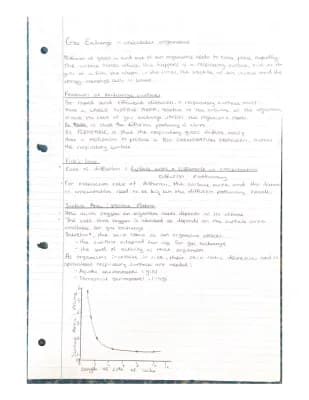 Gas Exchange - unicellular organisms
Diffusion of gases in and out of an organisms needs to take place rapidly.
The surface where this happens is a respiratory surface, such as the
gills of a fish, the alveoli in the lungs, the tracheae of an insect and the
spongy mesophyll cells in leaves.
Features of exchange surfaces
For rapid and efficient diffusion, a respiratory surface must:
Have a LARGE SURFACE AREA, relative to the volume of the organism,
so Be THIN, so that the diffusion pathway is short
Be PERMEABLE so that the respiratory gases diffuse easily
Have a mechanism to produce a DIFFUSION GRADIENT, across
the respiratory surface
Fick's Law
Rate of diffusion = Surface area x Difference in concentration
Diffusion Pathway
For maximum rate of diffusion, the surface area and the difference
in concentration need to be big but the diffusion pathway small.
Surface Area : Volume Ratio
How much oxygen an organism needs depends on its volume
The rate that oxygen is absorbed at depends on the surface area
available for gas exchange
- the surface adapted for use for gas exchange
- the level of activity in that organism
As organisms increase in size, their ratio decreases and so
specialised respiratory surfaces are needed:
- Aquatic environment: gills
- Terrestrial environment: lungs
Surface Area : Volume
Length of side of cube